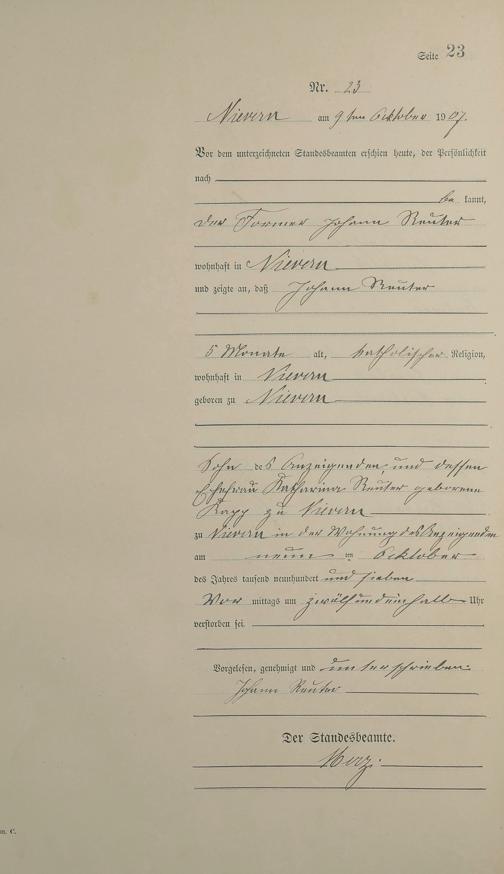 Seite 23
Nr. 23
Nievern am 9ten Oktober 1907.
Vor dem unterzeichneten Standesbeamten erschien heute, der Persönlichkeit
nach
be kannt,
der Former Johann Reuter
wohnhaft in Nievern
und zeigte an, daß Johann Reuter
5 Monate alt, katholischer Religion,
wohnhaft in Nievern
geboren zu Nievern
Sohn des Anzeigenden, und dessen
Ehefrau Katharina Reuter geborene
Kapp zu Nievern
zu Nievern in der Wohnung des Anzeigenden
am neunten Ocktober
des Jahres tausend neunhundert und sieben
Vor mittags um zwölfundeinhalb Uhr
verstorben sei.
Vorgelesen, genehmigt und unterschrieben.
Johann Reuter
Der Standesbeamte.
Merz.
m. C.